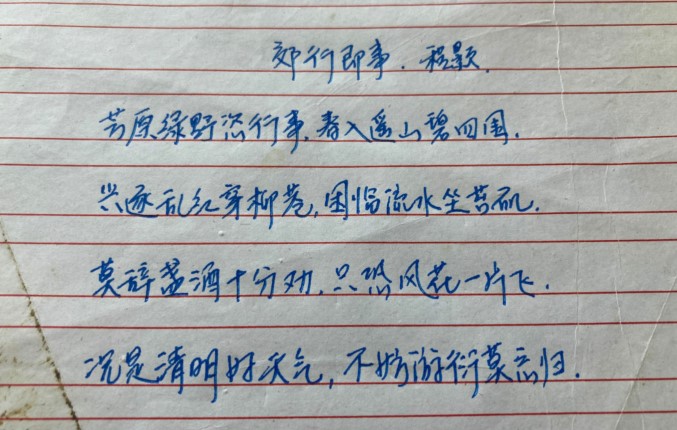 郊行即事. 程颢.
芳原绿野恣行事,春入遥山碧四围.
兴逐乱红穿柳巷,困临流水坐苔矶.
莫辞盏酒十分劝,只恐风花一片飞.
况是清明好天气,不妨游衍莫忘归.